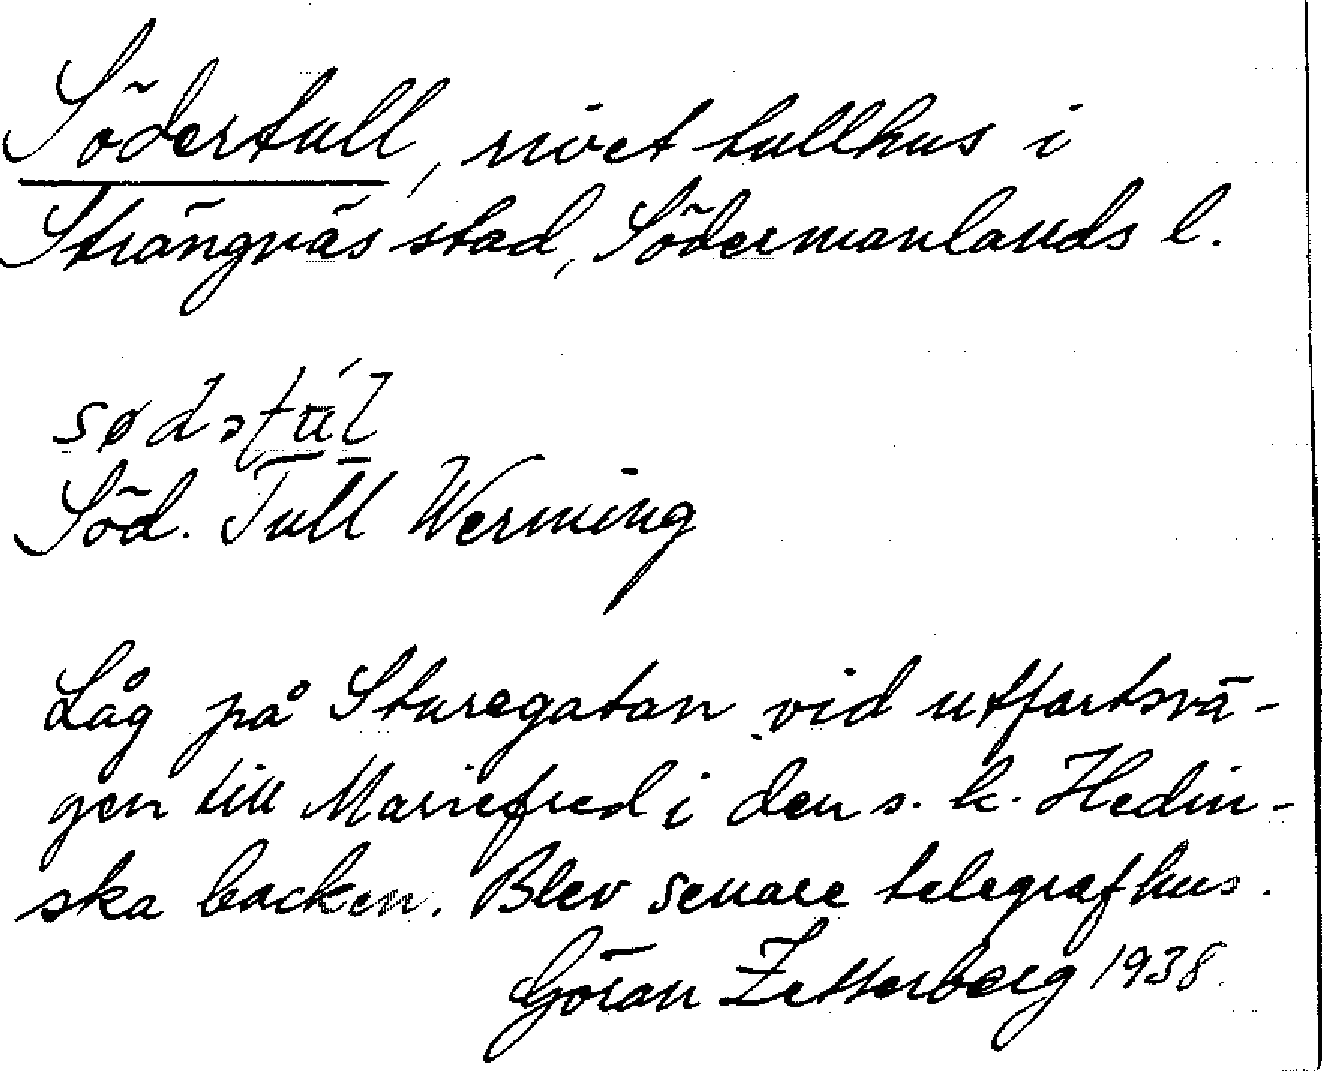 Södertull, rivet tullhus i
Strängnäs stad, Södermanlands l.
Söd. Tull Werming
Låg på Sturegatan vid utfartsvä-
gen till Mariefred i den s. k. Hedin-
ska backen. Blev senare telegrafhus.
Göran Zetterberg 1938.